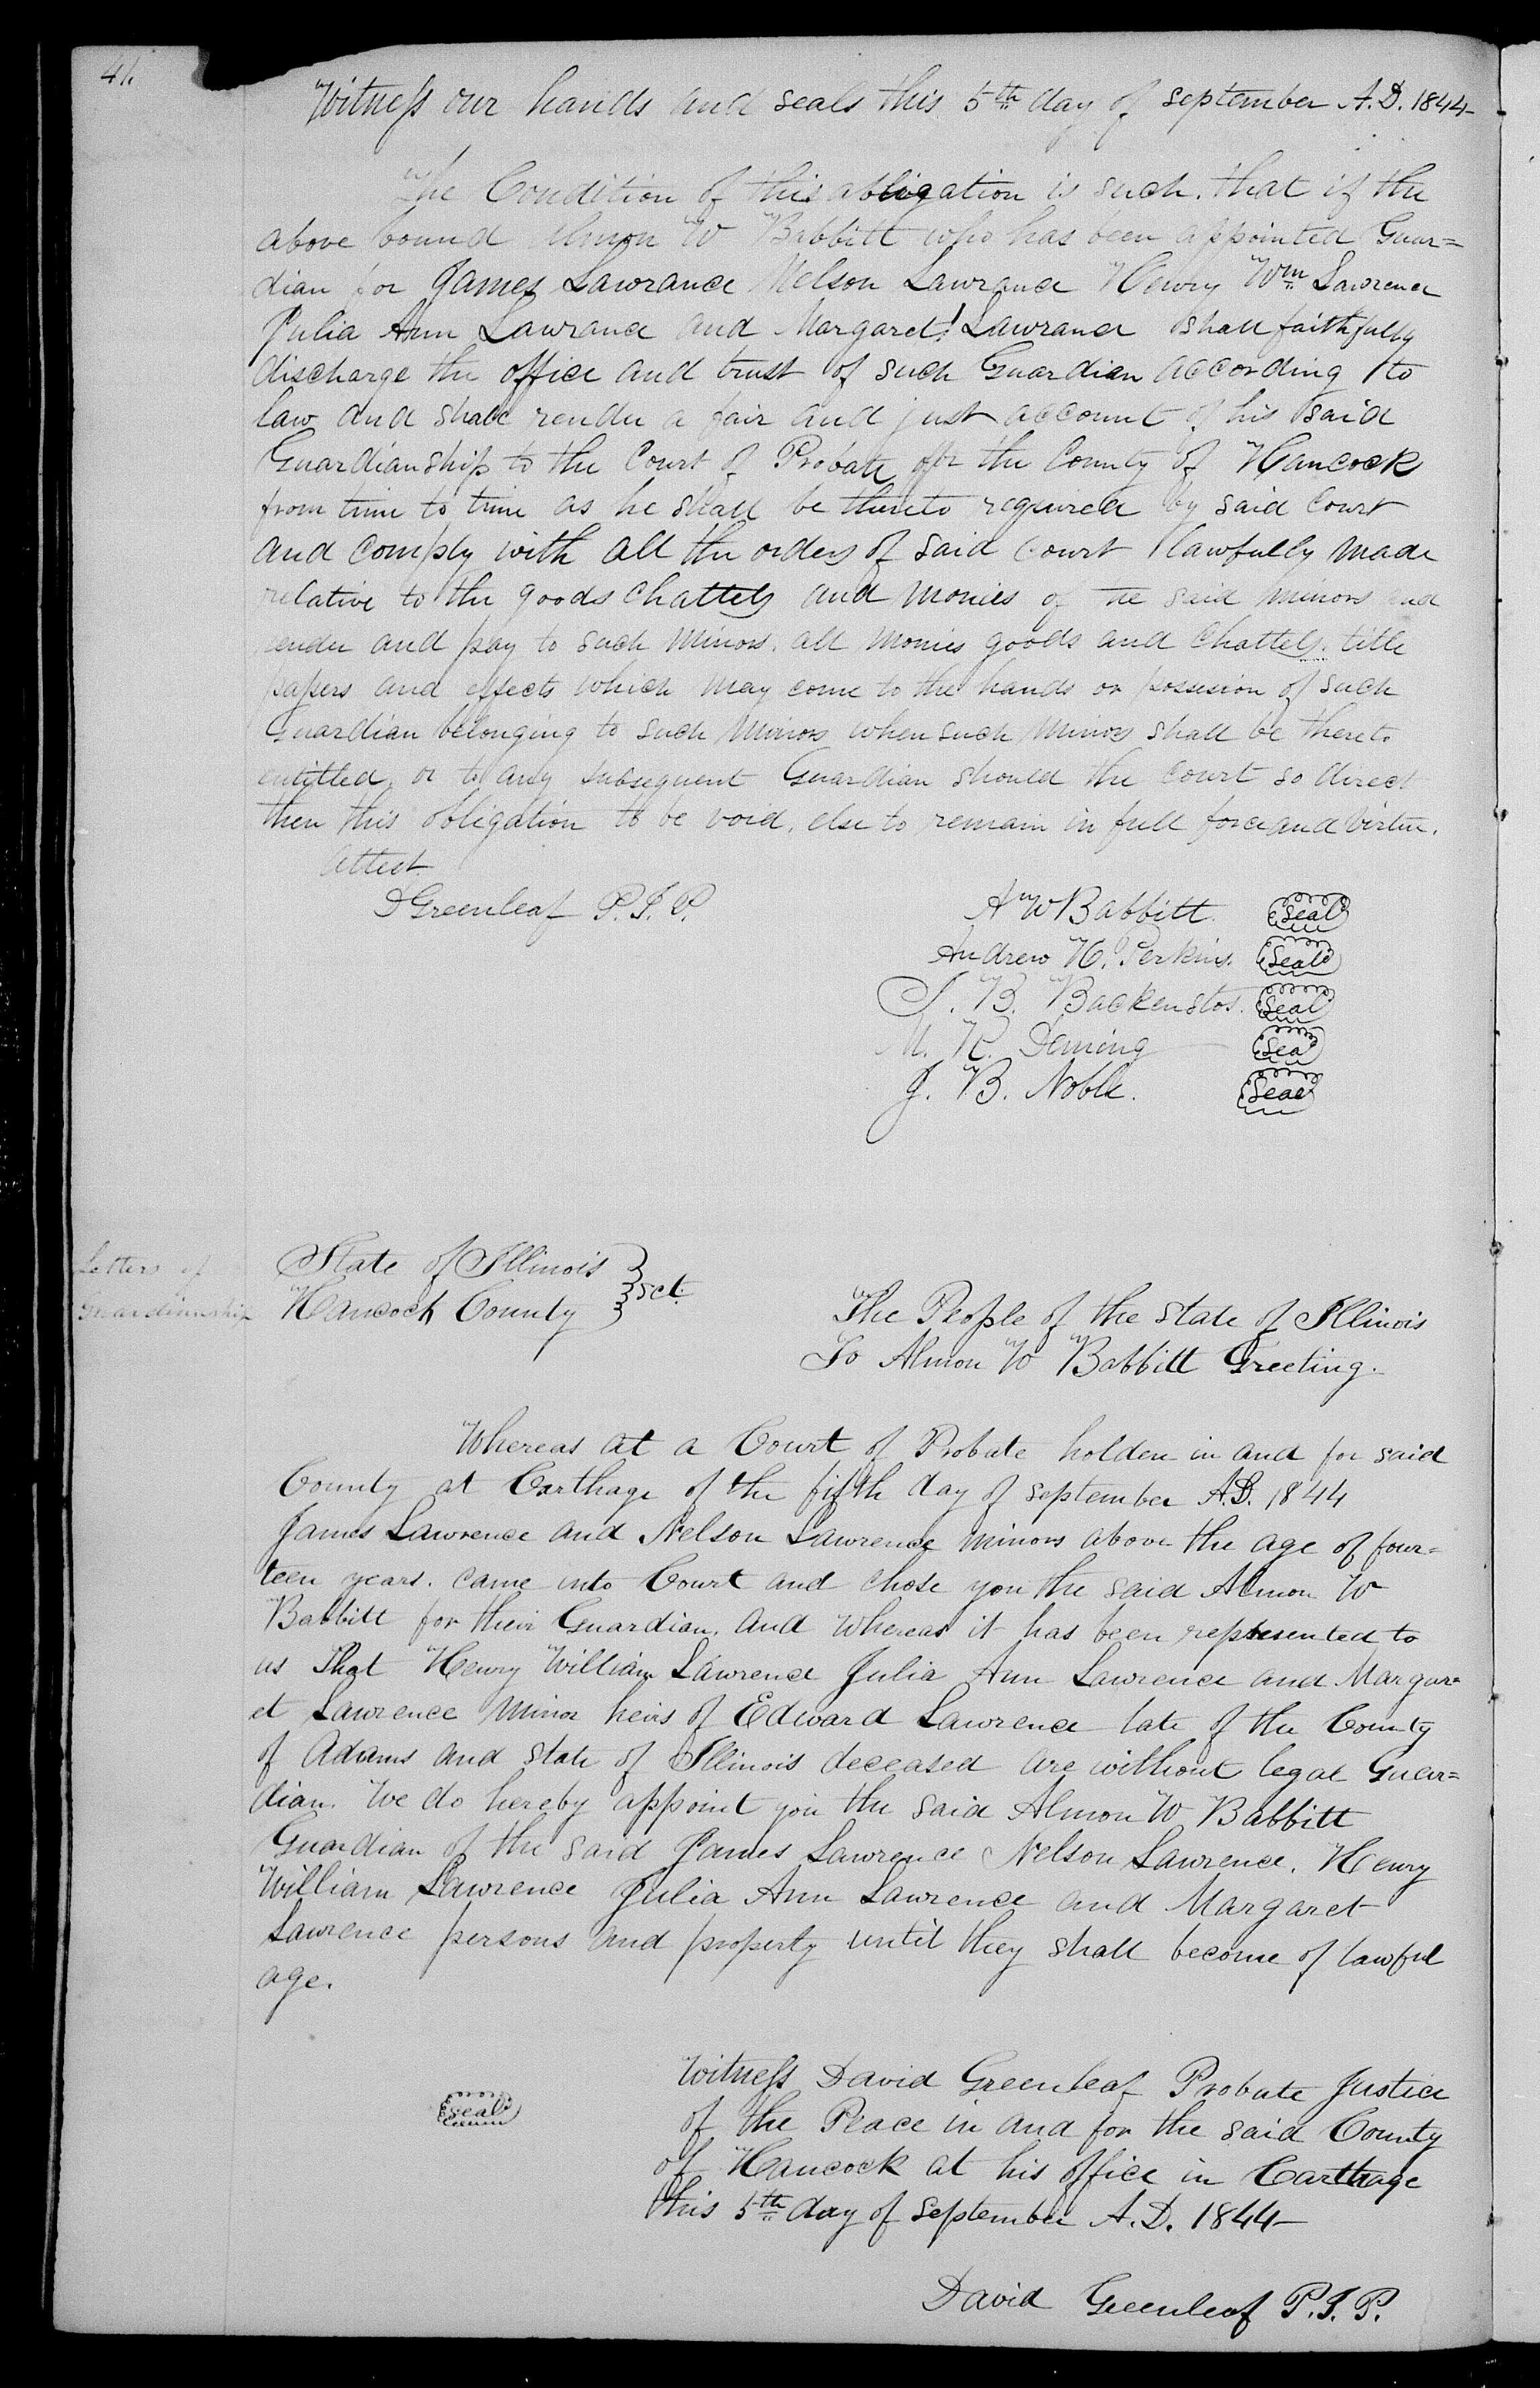 Witness our hands and seals this 5th day of September A.D. 1844-
The Condition of this abligation is such. that if the
above bound Almon W Babbitt who has been appointed Guar=
dian for James Lawrance Nelson Lawrance Henry Wm Lawrence
Julia Ann Lawrance and Margaret Lawrance shall faithfully
discharge the office and trust of such Guardian according to
law and shall render a fair and just account of his said
Guardianship to the Court of Probate for the County of Hancock
from time to time as he shall be thereto required by said Court
and comply with all the orders of said Court lawfully made
relative to the goods chattels and monies of the said minors and
render and pay to such minors. all monies goods and chattels. title
papers and effects which may come to the hands or possession of such
Guardian belonging to such minors when such minors shall be thereto
entitled, or to any subsequent Guardian should the court so direct
then this obligation to be void, else to remain in full force and virtue.
attest
D Greenleaf P.J.P.
A W Babbitt. Seal
Andrew H. Perkins. Seal
J. B. Backenstos. Seal
M. R. Deming Seal
J. B. Noble. Seal
Letters of
Guardianship
State of Illinois
Hancock County } sct.
The People of the State of Illinois
To Almon W Babbitt Greeting.
Whereas at a Court of Probate holden in and for said
County at Carthage of the fifth day of September A.D. 1844
James Lawrence and Nelson Lawrence minors above the age of four=
teen years. came into Court and chose you the said Almon W
Babbitt for their Guardian. and whereas it has been represented to
us That Henry William Lawrence Julia Ann Lawrence and Margar=
et Lawrence minor heirs of Edward Lawrence late of the County
of Adams and state of Illinois deceased are without legal Guar=
dian. We do hereby appoint you the said Almon W Babbitt
Guardian of the said James Lawrence Nelson Lawrence. Henry
William Lawrence Julia Ann Lawrence and Margaret
Lawrence persons and property until they shall become of lawful
age.
Seal
Witness David Greenleaf Probate Justice
of the Peace in and for the said County
of Hancock at his office in Carthage
this 5th day of September A.D. 1844-
David Greenleaf P.J.P.